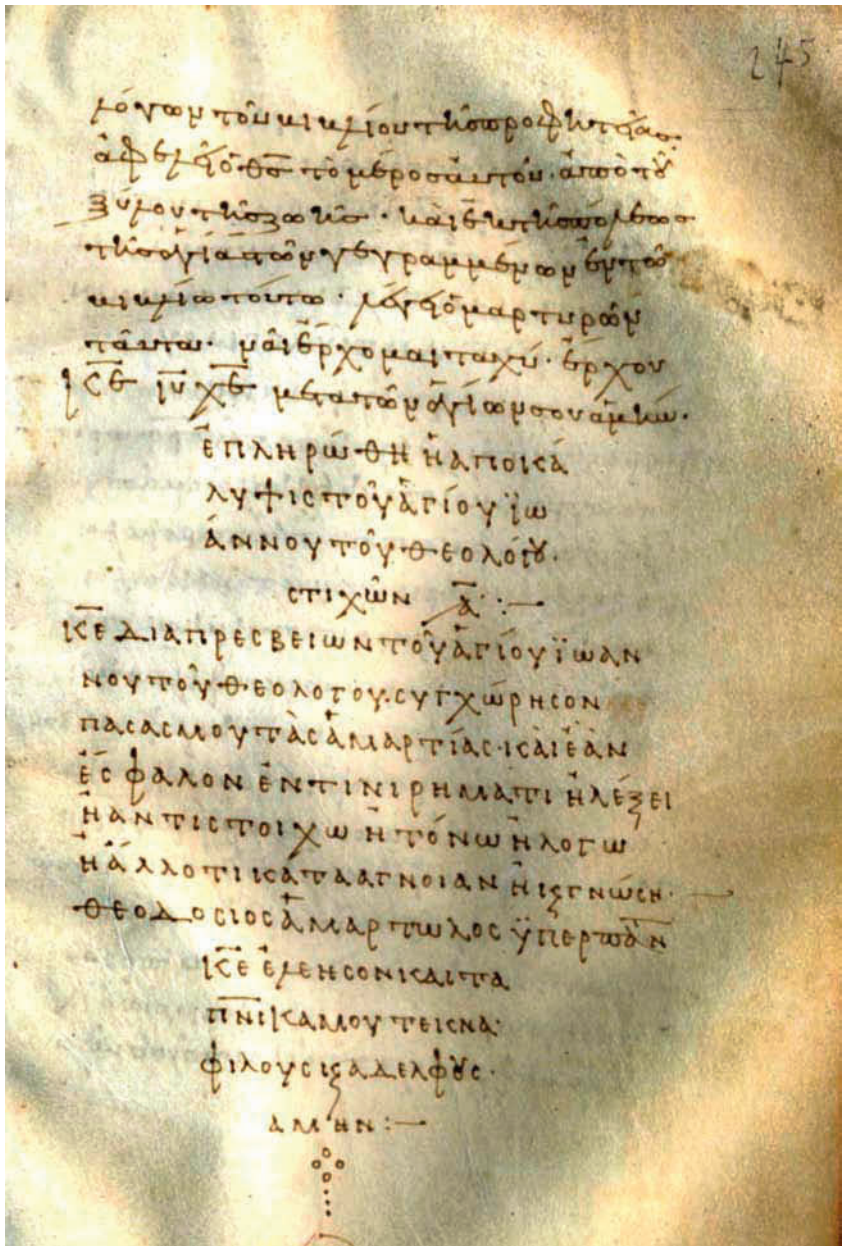 245
λόγων τοῦ βιβλίου τῆς προφητείας·
ἀφελεῖ ὁ θ̅ς̅ τὸ μέρος ἀυτοῦ· ἀπὸ τοῦ
ξύλου τῆς ζωῆς· καὶ ἐκ τῆς πόλεως
τῆς ἁγίας τῶν γεγραμμένων ἐν τῶ
βιβλίω τούτω· λέγει ὁ μαρτυρῶν
ταῦτα· ναὶ ἔρχομαι ταχύ· ἔρχου
κ̅ε̅ ι̅υ̅ χ̅ε̅ μετα τῶν ἁγίων σου ἀμήν·
ἐπληρώθη ἡ αποκά
λυψις τοῦ ἁγίου ϊω
άννου τοῦ θεολόγου·
στιχῶν ͵α̅ :—
κ̅ε̅ δια πρεσβειων τοῦ ἁγίου ϊωαν
νου τοῦ θεολογου· συγχώρησον
πασας μου τὰς ἁμαρτίας· καὶ ἐὰν
ἔσφαλον ἔν τινι ρήματι ἢ λέξει
ἢ αντιστοιχω ἢ τόνω ἢ λογω
ἢ ἄλλο τι κατα αγνοιαν ἢ ϗ γνώση·
θεοδοσιος ἁμαρτωλος
κ̅ε̅ ἐλεησον και τα
π̅ν̅ικα μου τεκνα·
φιλους ϗ αδελφους·
αμην :—